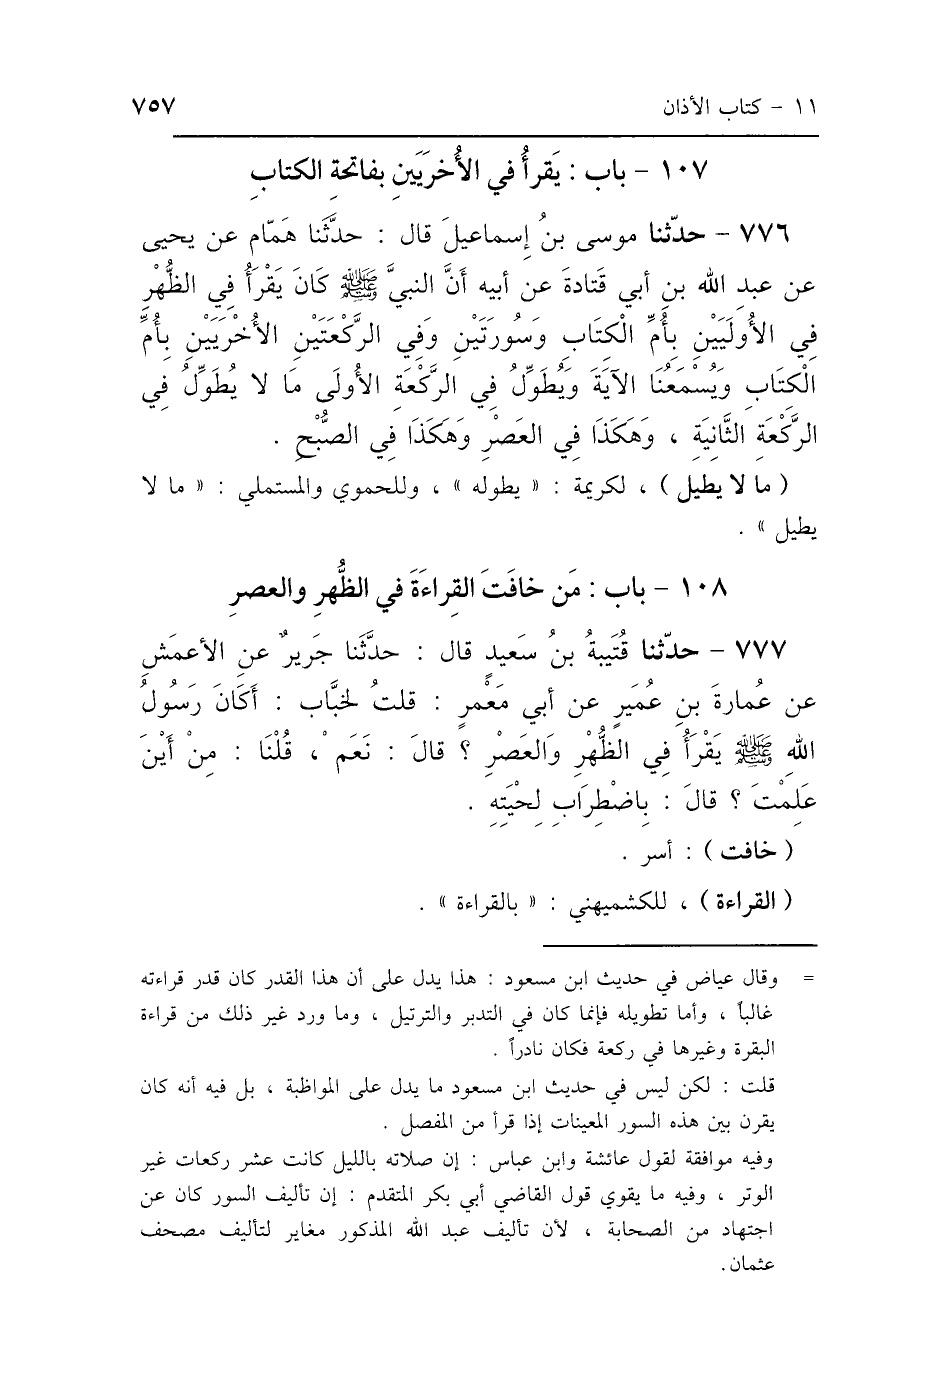 ١١ - كتاب الأذان ٧٥٧
١٠٧ - باب : يَقرأُ في الأُخرَيَينِ بفاتحةِ الكتابِ
٧٧٦ - حدّثنا موسى بنُ إسماعيلَ قال : حدَّثَنا هَمّام عن يحيى
عن عبدِ الله بنِ أبي قَتادةَ عن أبيه أنَّ النبيَّ ﷺ كَانَ يَقْرَأُ فِي الظُّهْرِ
فِي الأُولَيَيْنِ بِأُمِّ الْكِتَابِ وَسُورَتَيْنِ وَفِي الرَّكْعَتَيْنِ الأُخْرَيَيْنِ بِأُمِّ
الْكِتَابِ وَيُسْمَعُنَا الآيَةَ وَيُطَوِّلُ فِي الرَّكْعَةِ الأُولَى مَا لا يُطَوِّلُ فِي
الرَّكْعَةِ الثَّانِيَةِ ، وَهَكَذَا فِي العَصْرِ وَهَكَذَا فِي الصُّبْحِ .
( ما لا يطيل ) ، لكريمة : « يطوله » ، وللحموي والمستملي : « ما لا
يطيل » .
١٠٨ - باب : مَن خافَتَ القراءَةَ في الظُّهرِ والعصرِ
٧٧٧ - حدّثنا قُتَيبةُ بنُ سَعيدٍ قال : حدَّثَنا جَريرٌ عنِ الأعمَشِ
عن عُمارةَ بنِ عُمَيرٍ عن أبي مَعْمرٍ : قلتُ لخبَّاب : أَكَانَ رَسُولُ
الله ﷺ يَقْرَأُ فِي الظُّهْرِ وَالعَصْرِ ؟ قالَ : نَعَمْ ، قُلْنَا : مِنْ أَيْنَ
عَلِمْتَ ؟ قالَ : بِاضْطِرَابِ لِحْيَتِهِ .
( خافت ) : أسر .
( القراءة ) ، للكشميهني : « بالقراءة » .
= وقال عياض في حديث ابن مسعود : هذا يدل على أن هذا القدر كان قدر قراءته
غالباً ، وأما تطويله فإنما كان في التدبر والترتيل ، وما ورد غير ذلك من قراءة
البقرة وغيرها في ركعة فكان نادراً .
قلت : لكن ليس في حديث ابن مسعود ما يدل على المواظبة ، بل فيه أنه كان
يقرن بين هذه السور المعينات إذا قرأ من المفصل .
وفيه موافقة لقول عائشة وابن عباس : إن صلاته بالليل كانت عشر ركعات غير
الوتر ، وفيه ما يقوي قول القاضي أبي بكر المتقدم : إن تأليف السور كان عن
اجتهاد من الصحابة ، لأن تأليف عبد الله المذكور مغاير لتأليف مصحف
عثمان .